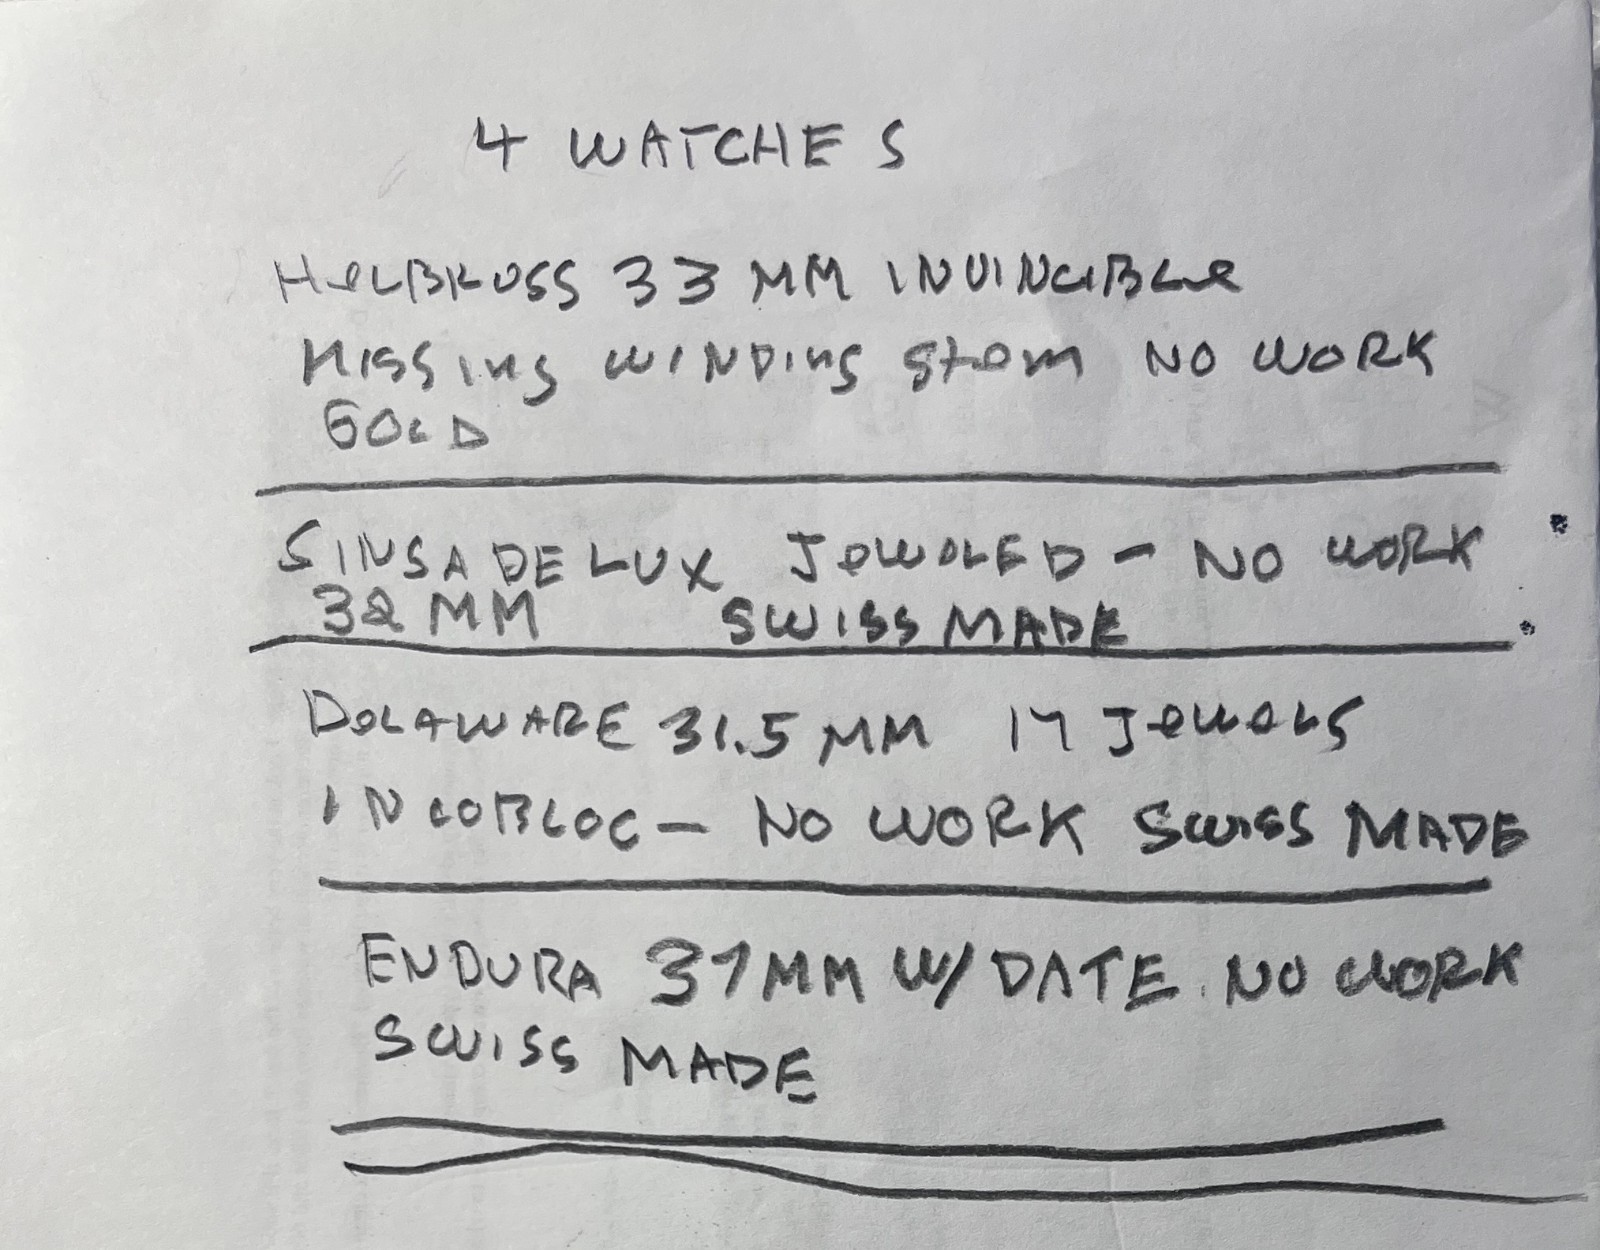 4 WATCHES
HelBROSS 33 MM INVINCIBLe
MISSING WINDING Stem NO WORK
GOLD
SINSA DE LUX JeWeLED - NO WORK
32 MM SWISS MADE
DeLAWARE 31.5 MM 17 JeWeLS
INCOBLOC - NO WORK SWISS MADE
ENDURA 37MM W/ DATE. NO WORK
SWISS MADE